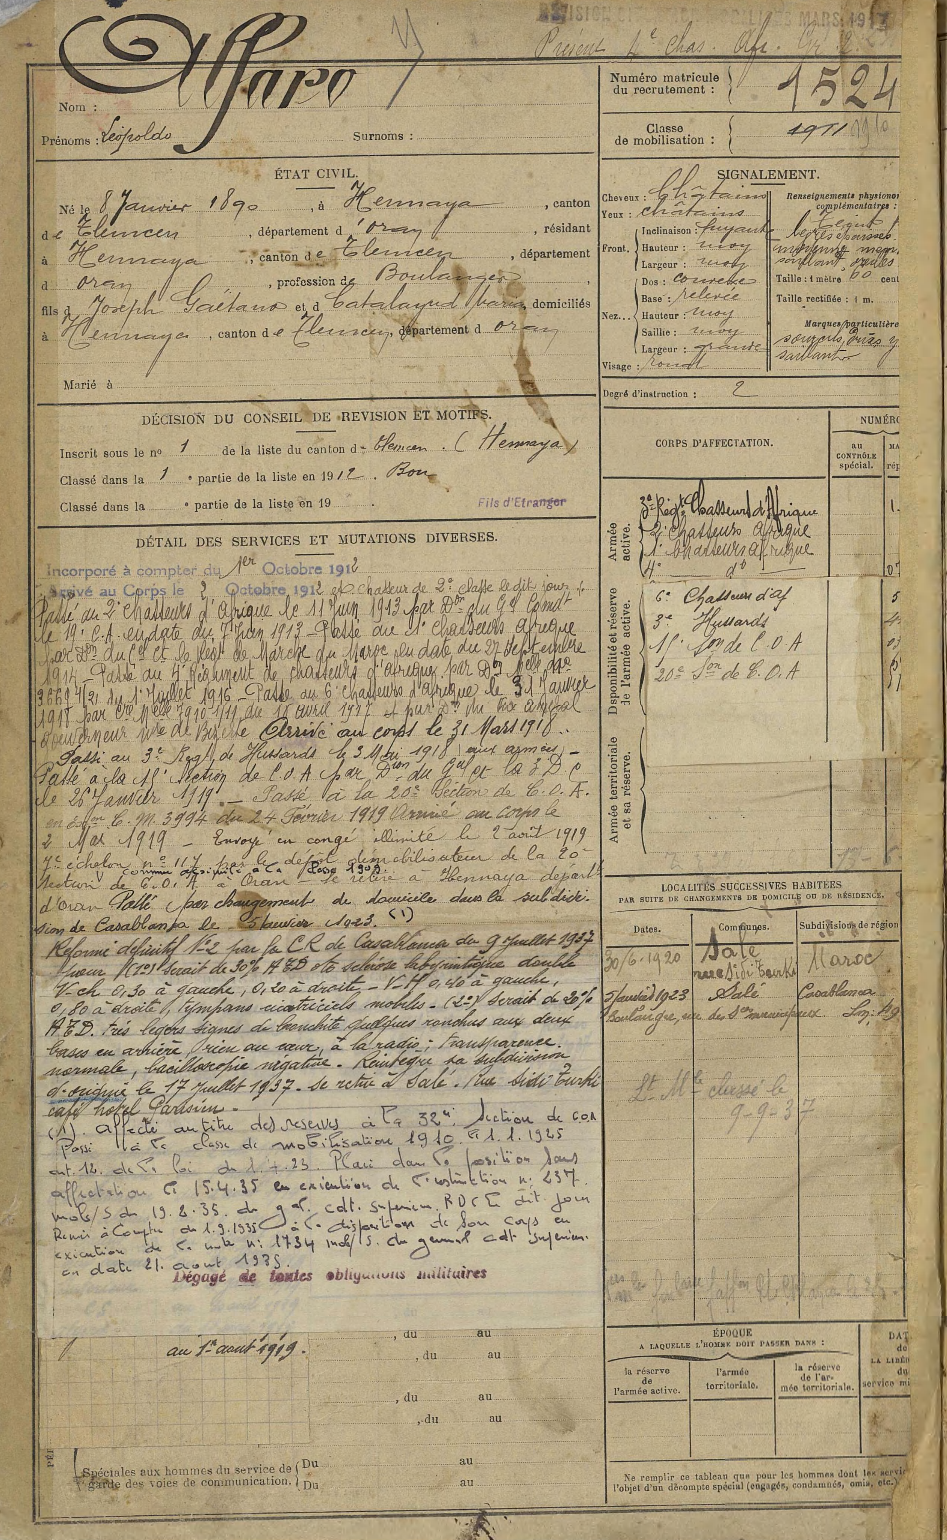 Présent 4e Chas. Afr.
Alfaro
Nom :
Prénoms : Léopoldo Surnoms :
Numéro matricule
du recrutement : 1524
Classe
de mobilisation : 1911 1910
ÉTAT CIVIL.
Né le 8 Janvier 1890, à Hennaya, canton
de Tlemcen, département d'oran, résidant
à Hennaya, canton de Tlemcen, département
d oran, profession de Boulanger
fils d Joseph Gaëtano et d Catalayud Maria, domiciliés
à Hennaya, canton de Tlemcen, département d oran
Marié à
SIGNALEMENT.
Cheveux : Châtains
Yeux : châtains
Front. Inclinaison : fuyante
Hauteur : moy
Largeur : moy
Nez... Dos : convexe
Base : relevée
Hauteur : moy
Saillie : moy
Largeur : grande
Visage : rond
Renseignements physionomi
complémentaires :
Taille : 1 mètre 60 cent
Taille rectifiée : 1 m.
Marques particulière
sourcils
saillants
Degré d'instruction : 2
DÉCISION DU CONSEIL DE REVISION ET MOTIFS.
Inscrit sous le no 1 de la liste du canton de Tlemcen. (Hennaya)
Classé dans la 1e partie de la liste en 1912. Bon
Classé dans la e partie de la liste en 19 .
Fils d'Etranger
DÉTAIL DES SERVICES ET MUTATIONS DIVERSES.
Incorporé à compter du 1er Octobre 1912
Arrivé au Corps le 2 Octobre 1912 et chasseur de 2e classe le dit jour
Passé au 2e chasseurs d'Afrique le 11 Juin 1913 par Don du Gal Comdt
le 19e C.A. en date du 7 Juin 1913 - Passé au 1e chasseurs afrique
par Don du Col Ct le Régt de Marche du Maroc en date du 27 septembre
1914 - Passé au 4e Régiment de chasseurs d'afrique par Don Mlle no
3669 4/2 du 1 Juillet 1916 - Passé au 6e chasseurs d'afrique le 31 Janvier
1918 par Con Mlle 7910 1/11 du 18 avril 1917 + par Don du vice amiral
Gouverneur Mre de Bizerte Arrivé au corps le 31 Mars 1918.
Passé au 3e Régt de Hussards le 3 Mai 1918 (aux armées) -
Passé à la 15e Section de C.O.A par Don du Gal Ct la 3 D C
le 26 Janvier 1919 - Passé à la 20e Section de C.O.A.
en éxon C.M. 3994 du 24 Février 1919 Arrivé au corps le
2 Mai 1919 - Envoyé en congé illimité le 2 août 1919
7e échelon no 117 par le dépôt démobilisateur de la 20e
comme assimilé à la classe 1909
Section de C.O.A à Oran - se retire à Hennaya départt
d'Oran Passé par changement de domicile dans la subdivi-
sion de Casablanca le 5 Janvier 1923. (1)
Réformé définitif No 2 par la C.R de Casablanca du 9 Juillet 1937
pour (1o) serait de 30% A E D oto sclérose labyrintique double
V-ch 0,30 à gauche, 0,20 à droite - V-H 0,40 à gauche,
0,80 à droite, tympans cicatriciels mobiles. (2o) serait de 20%
A.E.D. très légers signes de bronchite quelques ronchus aux deux
bases en arrière, rien au cœur, à la radio : transparence
normale, bacilloscopie négative. Réintègre sa subdivision
d'origine le 17 Juillet 1937. se retire à Salé. Rue Sidi Turki
café hôtel Parisien.
(1). affecté au titre des reserves à la 32e Section de COA
Passé à la classe de mobilisation 1910 le 1.1.1925
art. 12. de la loi du 1.4.23. Placé dans la position sans
affectation le 15.4.35 en exécution de l'instruction no 237.
mob/S du 19.2.35. du gal cdt. superieur. le dit jour
Remis à Compter du 1.9.1935 à la disposition de son corps en
exécution de la note no 1734 mob/S. du général cdt superieur
en date 21. août 1935.
Dégagé de toutes obligations militaires
au 1er août 1919.
, du au
, du au
, du au
, du au
Spéciales aux hommes du service de
garde des voies de communication. Du au
Du au
CORPS D'AFFECTATION.
NUMÉRO
au
CONTRÔLE
spécial.
Armée
active.
3e Régt Chasseurs d'Afrique
2e Chasseurs Afrique
1e Chasseurs Afrique
4e do
Disponibilité et réserve
de l'armée active.
6e Chasseurs d'Af
3e Hussards
15e Son de C O A
20e Son de C.O.A
Armée territoriale
et sa réserve.
LOCALITÉS SUCCESSIVES HABITÉES
PAR SUITE DE CHANGEMENTS DE DOMICILE OU DE RÉSIDENCE.
Dates. Communes. Subdivisions de région
30/6-1920 Salé rue Sidi Turki Maroc
5 Janvier 1923 Salé Casablanca
Boulangre, rue des
Lt Mle classé le
9-9-37
ÉPOQUE
A LAQUELLE L'HOMME DOIT PASSER DANS :
la réserve
de
l'armée active.
l'armée
territoriale.
la réserve
de l'ar-
mée territoriale.
DAT
de
LA LIBÉR
du
service mi
Ne remplir ce tableau que pour les hommes dont les servic
l'objet d'un décompte spécial (engagés, condamnés, omis, etc.)